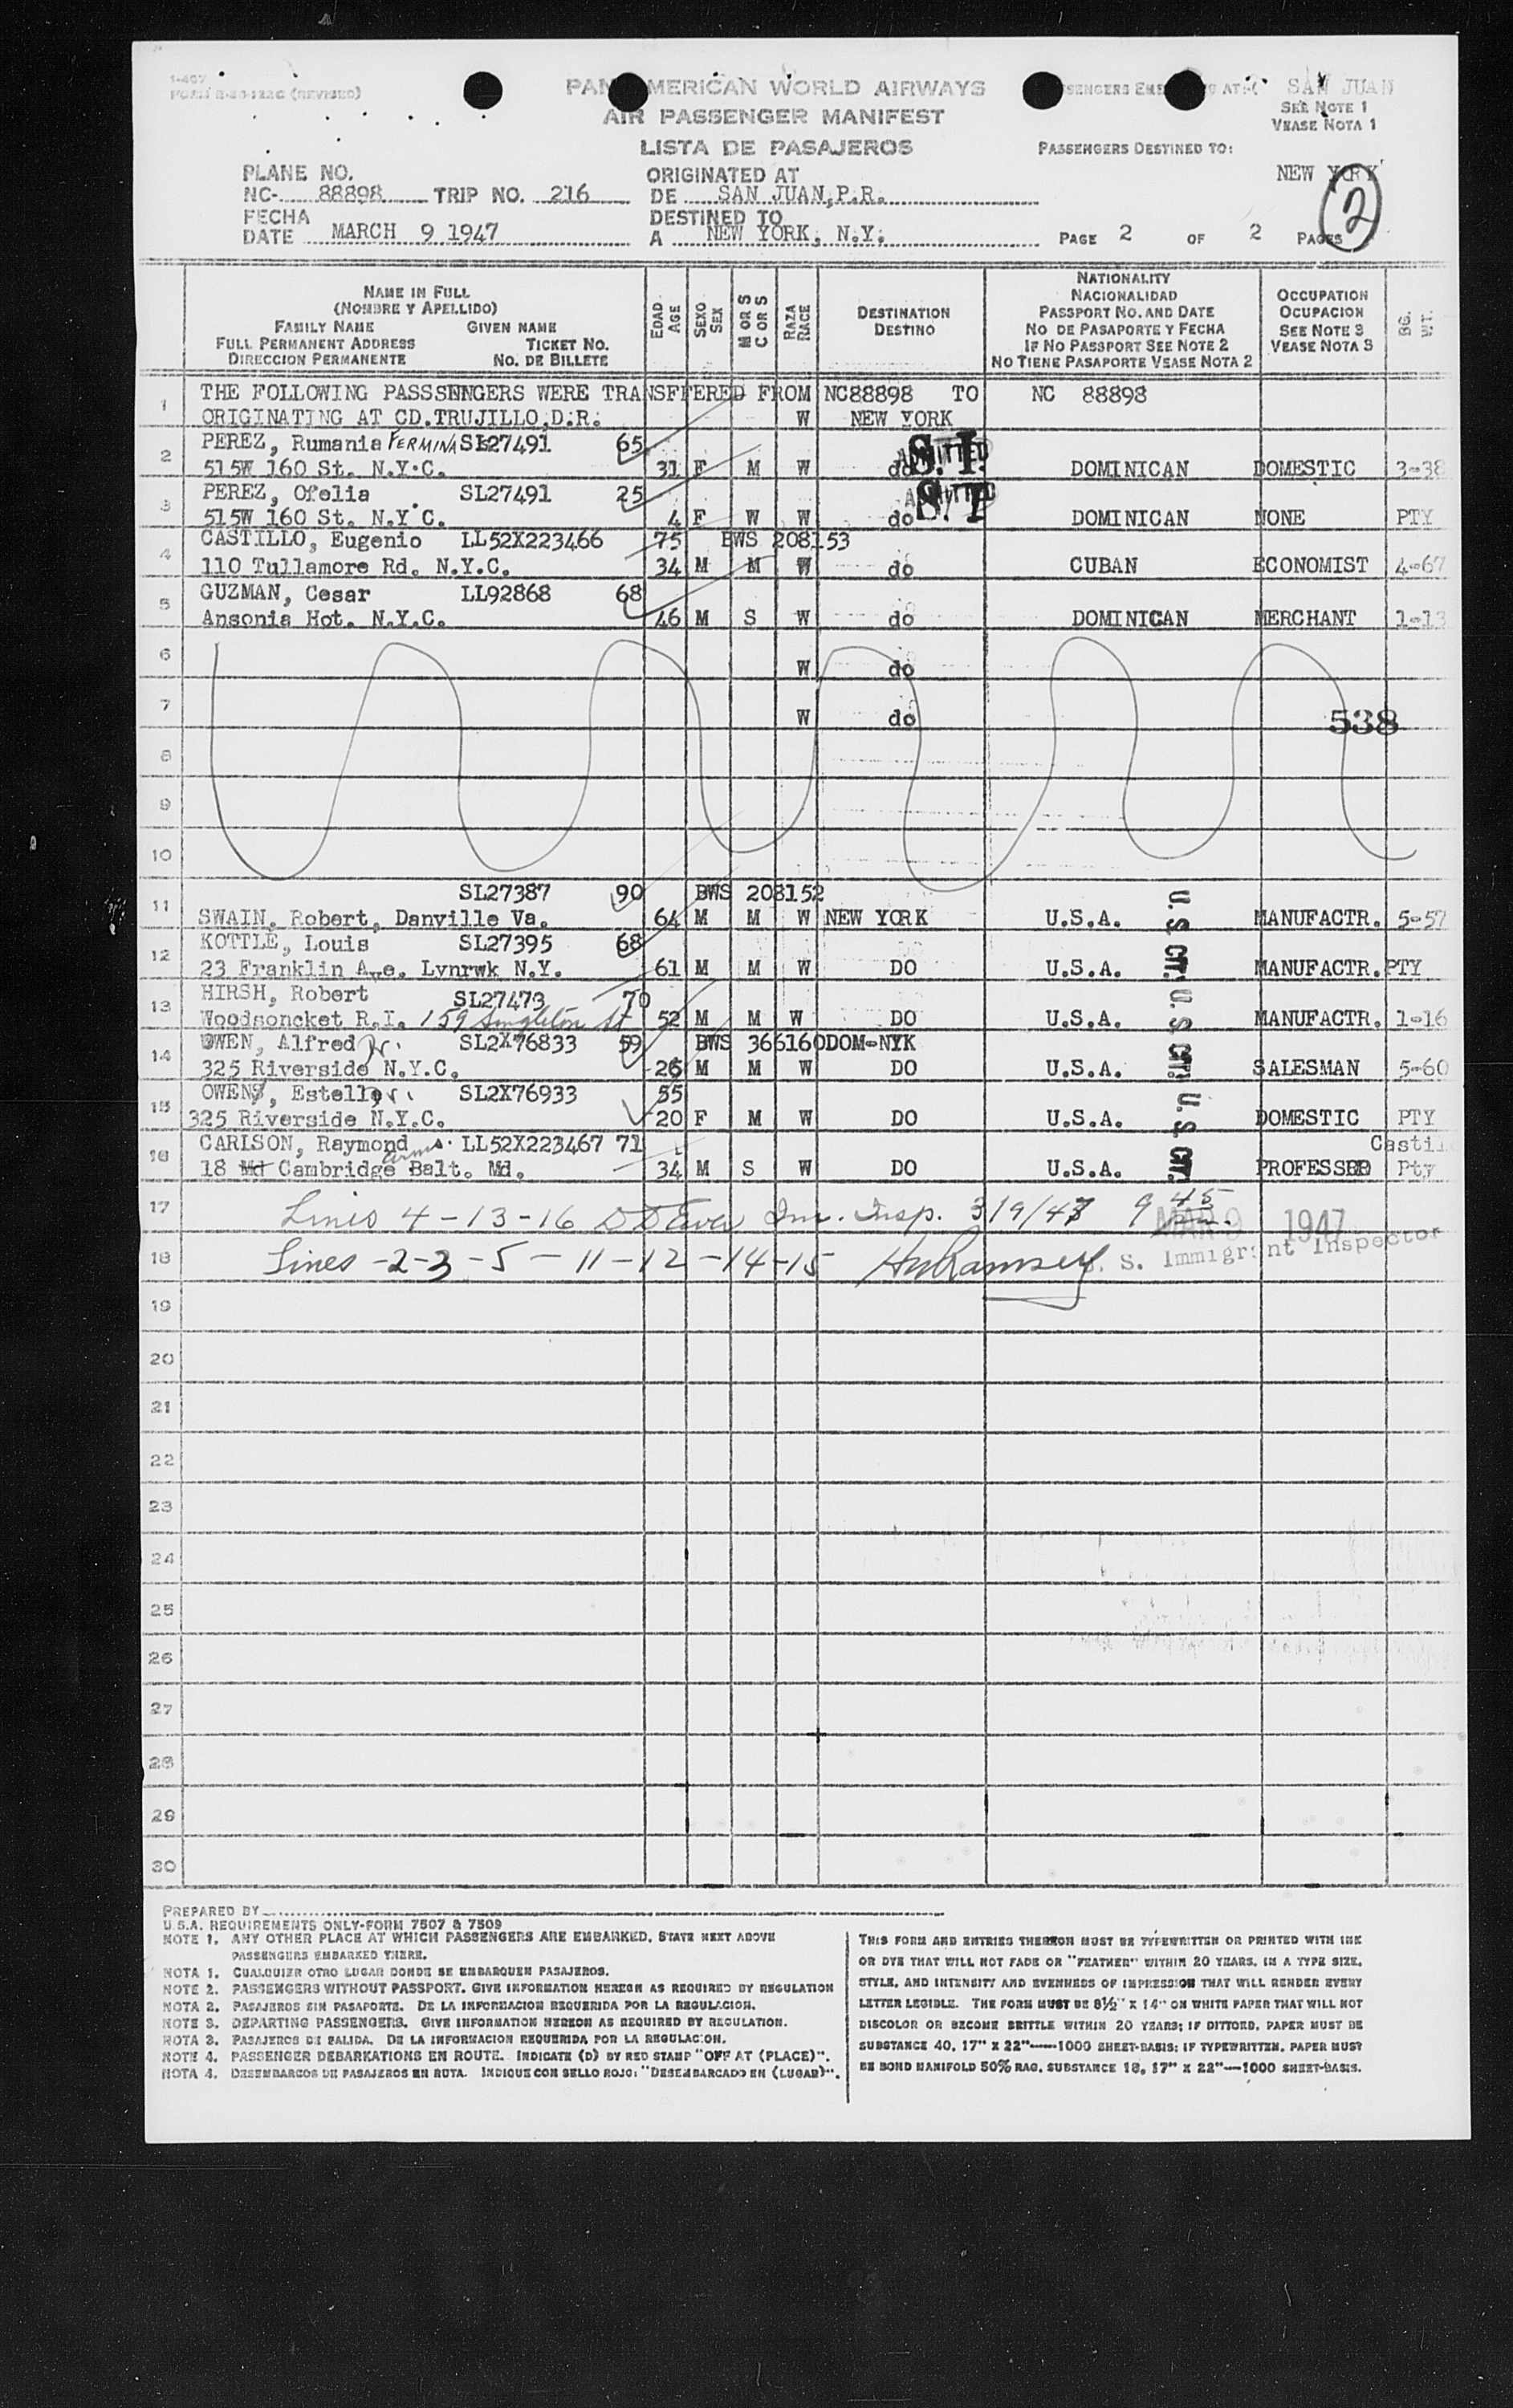 PAN AMERICAN WORLD AIRWAYS
AIR PASSENGER MANIFEST
LISTA DE PASAJEROS
SAN JUAN
SEE NOTE 1
VEASE NOTA 1
PASSENGERS DESTINED TO:
NEW YORK
2
PLANE NO.
NC- 88898 TRIP NO. 216
FECHA
DATE MARCH 9 1947
ORIGINATED AT
DE SAN JUAN, P.R.
DESTINED TO
A NEW YORK, N.Y.
PAGE 2 OF 2 PAGES
NAME IN FULL
(NOMBRE Y APELLIDO)
FAMILY NAME GIVEN NAME
FULL PERMANENT ADDRESS TICKET NO.
DIRECCION PERMANENTE NO. DE BILLETE
EDAD AGE
SEXO SEX
M OR S C OR S
RAZA RACE
DESTINATION
DESTINO
NATIONALITY
NACIONALIDAD
PASSPORT NO. AND DATE
NO DE PASAPORTE Y FECHA
IF NO PASSPORT SEE NOTE 2
NO TIENE PASAPORTE VEASE NOTA 2
OCCUPATION
OCUPACION
SEE NOTE 3
VEASE NOTA 3
BG. WT.
THE FOLLOWING PASSSENGERS WERE TRANSFFERED FROM NC88898 TO NC 88898
1 ORIGINATING AT CD.TRUJILLO,D.R. W NEW YORK
2 PEREZ, Rumania FERMINA SL27491 65 ADMITTED S. I.
515W 160 St. N.Y.C. 31 F M W do DOMINICAN DOMESTIC 3-38
3 PEREZ, Ofelia SL27491 25 ADMITTED S. I.
515W 160 St. N.Y.C. 4 F W W do DOMINICAN NONE PTY
4 CASTILLO, Eugenio LL52X223466 75 BWS 208153
110 Tullamore Rd. N.Y.C. 34 M M W do CUBAN ECONOMIST 4-67
5 GUZMAN, Cesar LL92868 68
Ansonia Hot. N.Y.C. 46 M S W do DOMINICAN MERCHANT 1-13
6 W do
7 W do 538
8
9
10
SL27387 90 BWS 208152
11 SWAIN, Robert, Danville Va. 64 M M W NEW YORK U.S.A. U. S. CIT. MANUFACTR. 5-57
12 KOTTLE, Louis SL27395 68
23 Franklin Ave. Lynrwk N.Y. 61 M M W DO U.S.A. MANUFACTR. PTY
13 HIRSH, Robert SL27473 70
Woodsoncket R.I. 159 Singleton St 52 M M W DO U.S.A. U. S. CIT. MANUFACTR. 1-16
14 OWEN, Alfred Jr. SL2X76833 59 BWS 366160DOM-NYK
325 Riverside N.Y.C. 26 M M W DO U.S.A. SALESMAN 5-60
15 OWENS, Estelle SL2X76933 55
325 Riverside N.Y.C. 20 F M W DO U.S.A. U. S. CIT. DOMESTIC PTY
16 CARLSON, Raymond LL52X223467 71 Castil
18 Md Cambridge Arms Balt. Md. 34 M S W DO U.S.A. PROFESSRO Pty
17 Lines 4-13-16 Im. Insp. 3/9/47 9 45
MAR 9 1947
18 Lines -2-3-5-11-12-14-15 U. S. Immigrant Inspector
19
20
21
22
23
24
25
26
27
28
29
30
PREPARED BY
U.S.A. REQUIREMENTS ONLY-FORM 7507 & 7509
NOTE 1. ANY OTHER PLACE AT WHICH PASSENGERS ARE EMBARKED, STATE NEXT ABOVE
PASSENGERS EMBARKED THERE.
NOTA 1. CUALQUIER OTRO LUGAR DONDE SE EMBARQUEN PASAJEROS.
NOTE 2. PASSENGERS WITHOUT PASSPORT. GIVE INFORMATION HEREON AS REQUIRED BY REGULATION
NOTA 2. PASAJEROS SIN PASAPORTE. DE LA INFORMACION REQUERIDA POR LA REGULACION.
NOTE 3. DEPARTING PASSENGERS. GIVE INFORMATION HEREON AS REQUIRED BY REGULATION.
NOTA 3. PASAJEROS DE SALIDA. DE LA INFORMACION REQUERIDA POR LA REGULACION.
NOTE 4. PASSENGER DEBARKATIONS EN ROUTE. INDICATE (D) BY RED STAMP "OFF AT (PLACE)".
NOTA 4. DESEMBARCOS DE PASAJEROS EN RUTA. INDIQUE CON SELLO ROJO: "DESEMBARCADO EN (LUGAR)".
THIS FORM AND ENTRIES THEREON MUST BE TYPEWRITTEN OR PRINTED WITH INK
OR DYE THAT WILL NOT FADE OR "FEATHER" WITHIN 20 YEARS, IN A TYPE SIZE,
STYLE, AND INTENSITY AND EVENNESS OF IMPRESSION THAT WILL RENDER EVERY
LETTER LEGIBLE. THE FORM MUST BE 8½" X 14" ON WHITE PAPER THAT WILL NOT
DISCOLOR OR BECOME BRITTLE WITHIN 20 YEARS; IF DITTOED, PAPER MUST BE
SUBSTANCE 40, 17" X 22"—1000 SHEET-BASIS; IF TYPEWRITTEN, PAPER MUST
BE BOND MANIFOLD 50% RAG, SUBSTANCE 18, 17" X 22"—1000 SHEET-BASIS.